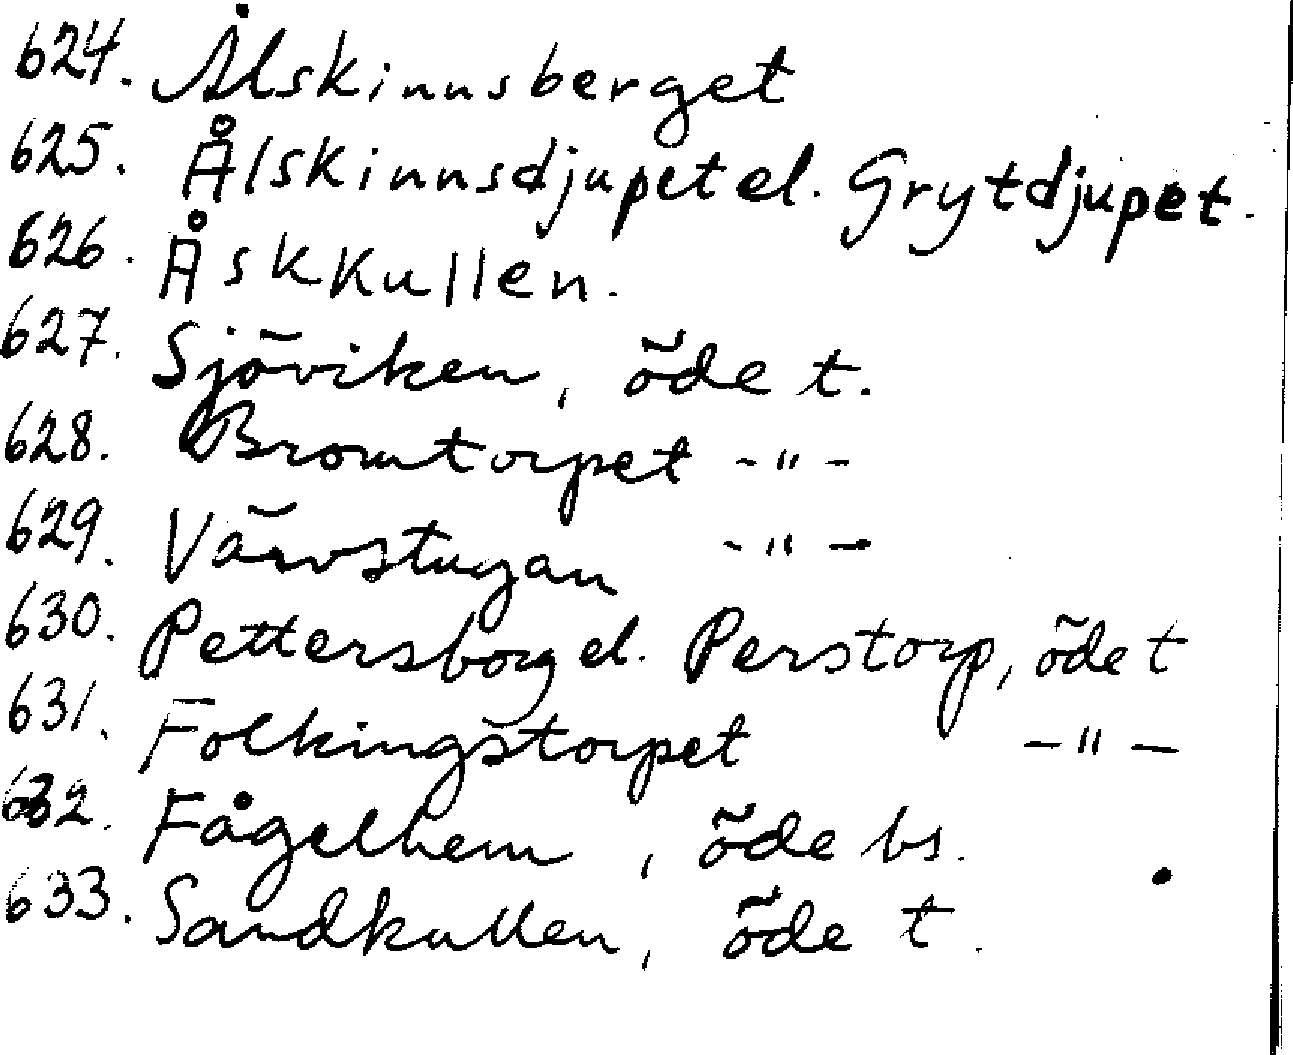 624. Ålskinnsberget
625. Ålskinnsdjupet el. Grytdjupet.
626. Åskkullen.
627. Sjöviken, öde t.
628. Bromtorpet -"-
629. Värvstugan -"-
630. Pettersborg el. Perstorp, öde t
631. Folkingstorpet -"-
632. Fågelhem, öde bs.
633. Sandkullen, öde t.